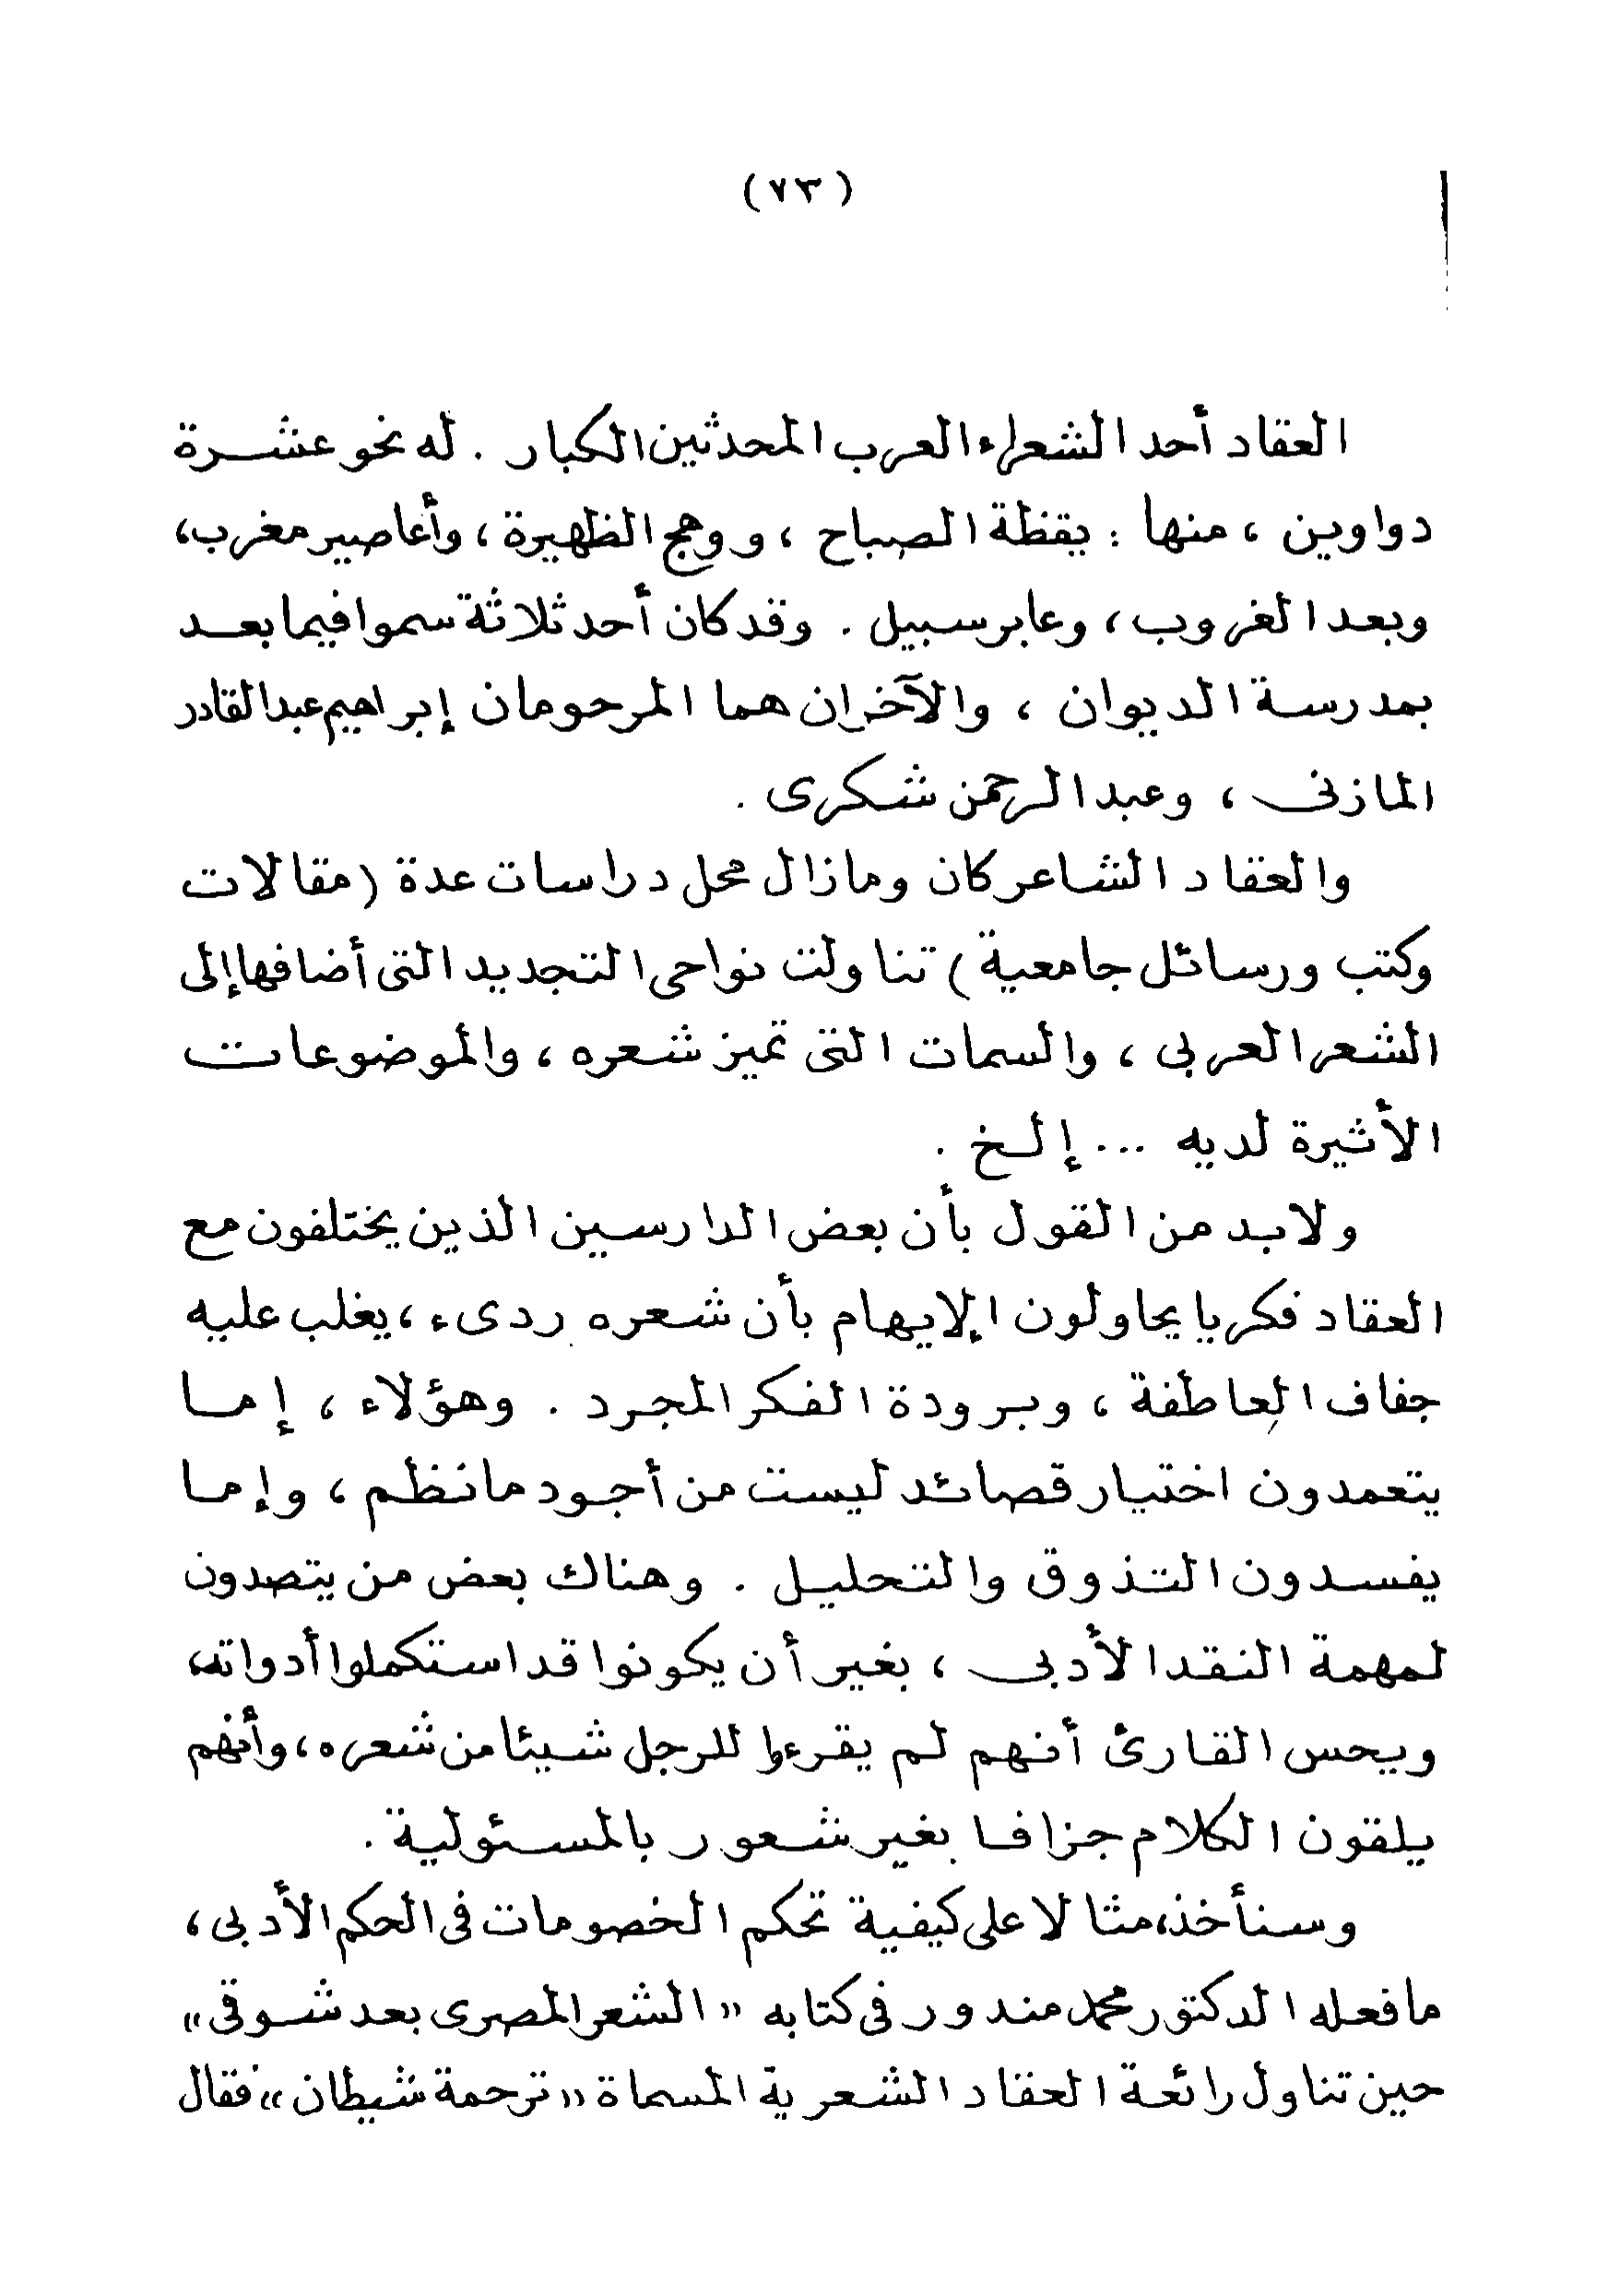 (٧٣)
العقاد أحد الشعراء العرب المحدثين الكبار . له نحو عشرة
دواوين ، منها : يقظة الصباح ، ووهج الظهيرة ، وأعاصير مغرب،
وبعد الغروب ، وعابر سبيل . وقد كان أحد ثلاثة سموا فيما بعد
بمدرسة الديوان ، والآخران هما المرحومان إبراهيم عبد القادر
المازنى ، وعبد الرحمن شكرى .
والعقاد الشاعر كان ومازال محل دراسات عدة (مقالات
وكتب ورسائل جامعية ) تناولت نواحى التجديد التى أضافها إلى
الشعر العربى ، والسمات التى تميز شعره ، والموضوعات
الأثيرة لديه ... إلخ .
ولابد من القول بأن بعض الدارسين الذين يختلفون مع
العقاد فكريا يحاولون الإيهام بأن شعره ردىء ، يغلب عليه
جفاف العاطفة ، وبرودة الفكر المجرد . وهؤلاء ، إما
يتعمدون اختيار قصائد ليست من أجود ما نظم ، وإما
يفسدون التذوق والتحليل . وهناك بعض من يتصدون
لمهمة النقد الأدبى ، بغير أن يكونوا قد استكملوا أدواته،
ويحس القارئ أنهم لم يقرءوا للرجل شيئا من شعره ، وأنهم
يلقون الكلام جزافا بغير شعور بالمسئولية .
وسنأخذ، مثالا على كيفية تحكم الخصومات فى الحكم الأدبى ،
ما فعله الدكتور محمد مندور فى كتابه « الشعر المصرى بعد شوقى »
حين تناول رائعة العقاد الشعرية المسماة « ترجمة شيطان » فقال